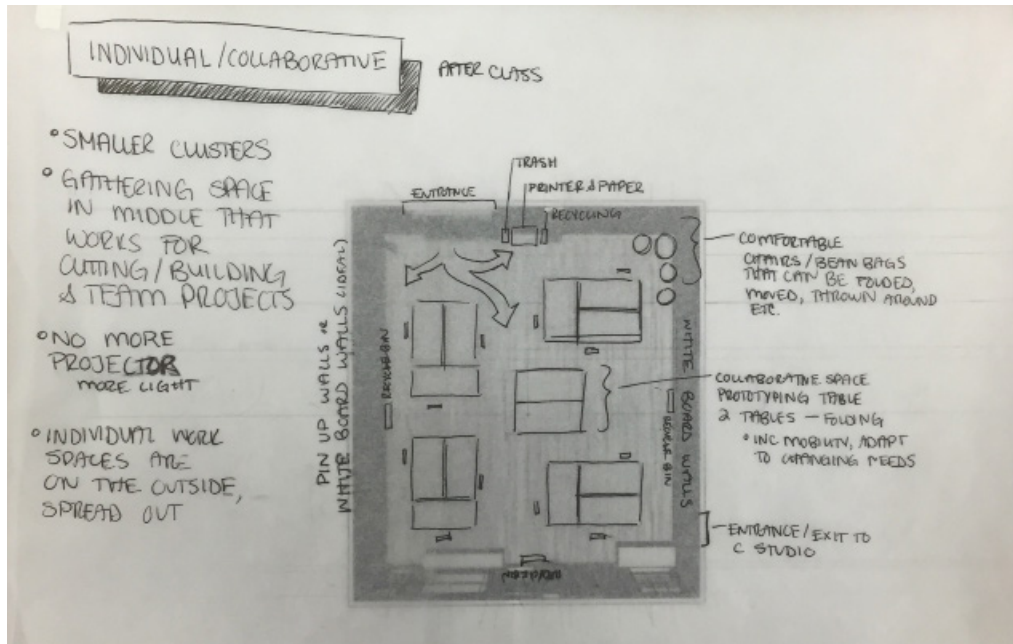 INDIVIDUAL/COLLABORATIVE
AFTER CLASS
° SMALLER CLUSTERS
° GATHERING SPACE
IN MIDDLE THAT
WORKS FOR
CUTTING/BUILDING
& TEAM PROJECTS
° NO MORE
PROJECTOR
MORE LIGHT
° INDIVIDUAL WORK
SPACES ARE
ON THE OUTSIDE,
SPREAD OUT
TRASH
ENTRANCE
PRINTER & PAPER
RECYCLING
PIN UP WALLS or
WHITE BOARD WALLS (IDEAL)
RECYCLE BIN
COMFORTABLE
CHAIRS/BEAN BAGS
THAT CAN BE FOLDED,
MOVED, THROWN AROUND
ETC.
WHITE BOARD WALLS
COLLABORATIVE SPACE
PROTOTYPING TABLE
2 TABLES — FOLDING
° INC MOBILITY, ADAPT
TO CHANGING NEEDS
ENTRANCE/EXIT TO
C STUDIO